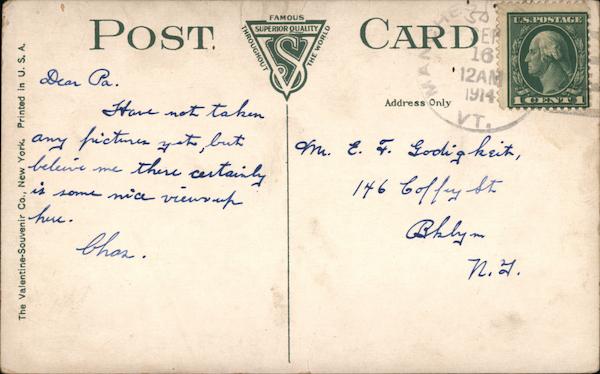 POST CARD
FAMOUS
SUPERIOR QUALITY
THROUGHOUT THE WORLD
VS
Address Only
MANCHESTER
SEP
16
12AM
1914
VT.
U.S. POSTAGE
1 CENT 1
The Valentine-Souvenir Co., New York. Printed in U. S. A.
Dear Pa.
Have not taken
any pictures yet, but
beleive me there certainly
is some nice views up
here.
Chas.
Mr. E. F. Godigkeit,
146 Coffey St
Bklyn
N.Y.